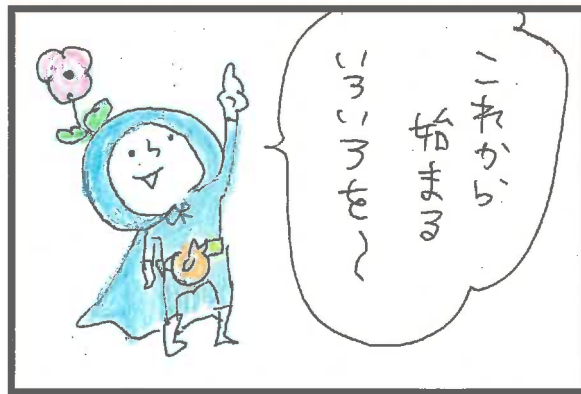 これから
始まる
いろいろを〜